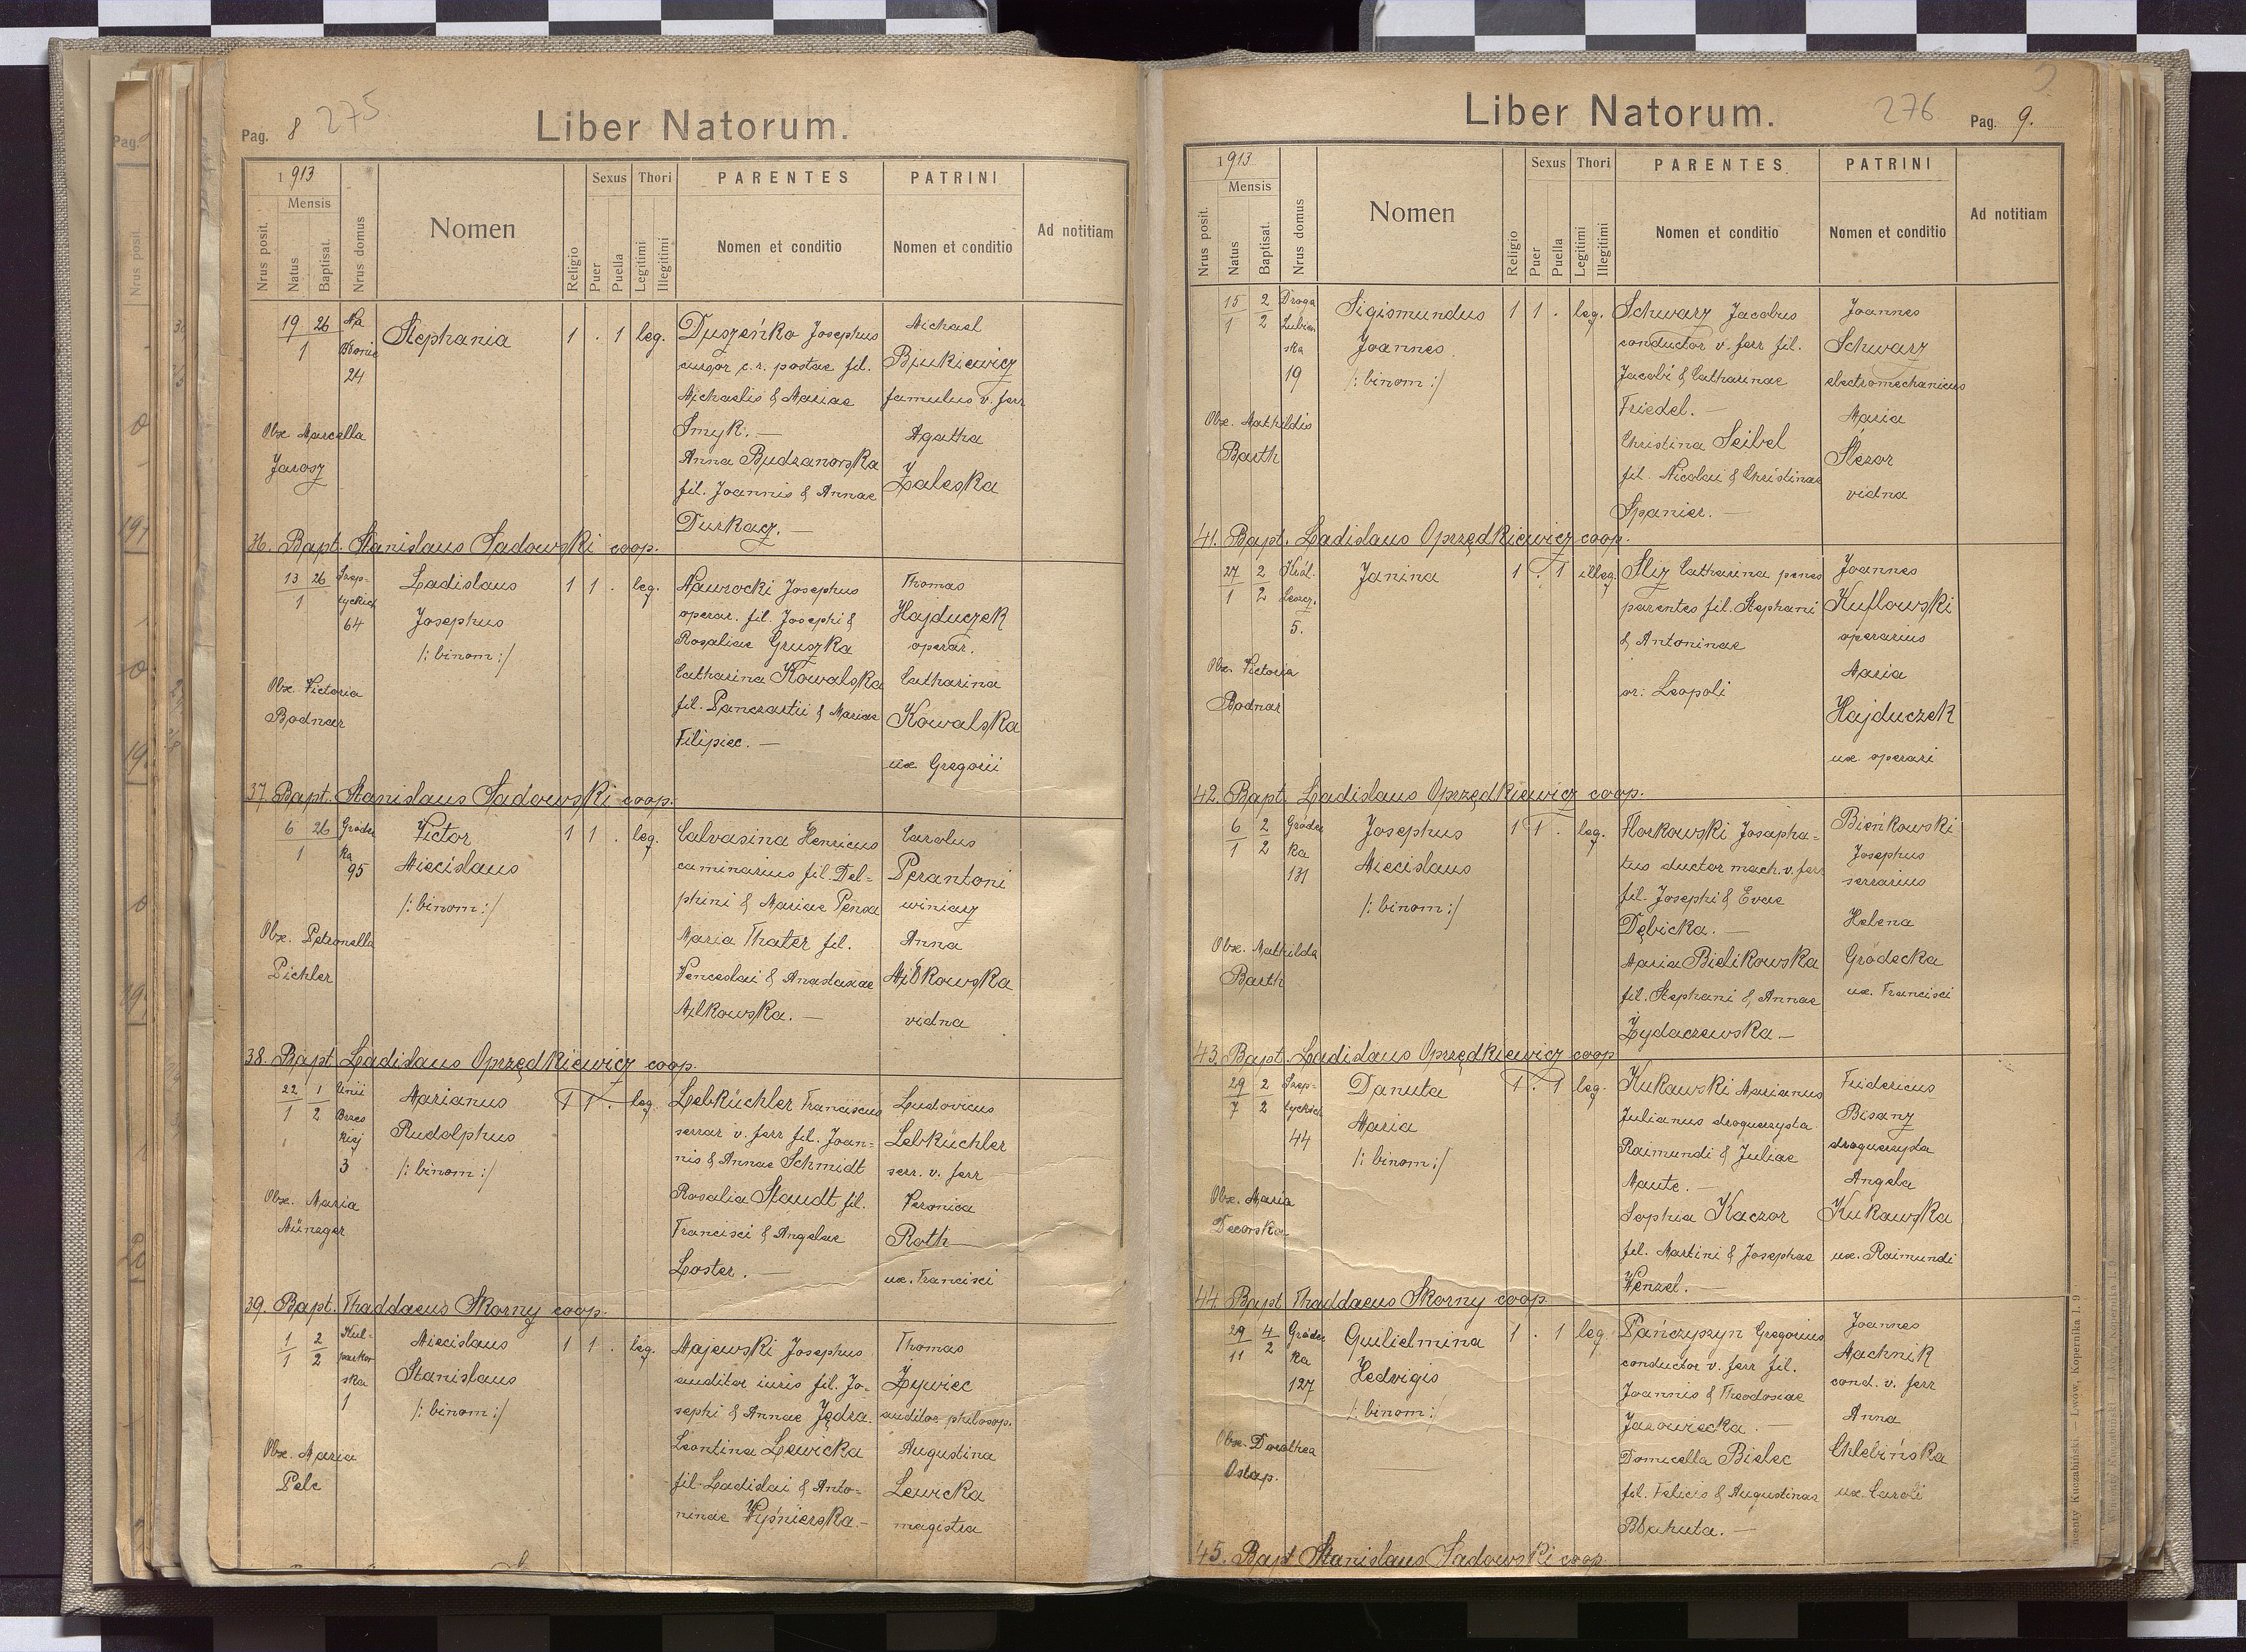 Pag. 8 275
Liber Natorum.
1913
Mensis
Nrus posit.
Natus
Baptisat.
Nrus domus
Nomen
Religio
Sexus
Puer
Puella
Thori
Legitimi
Illegitimi
PARENTES
Nomen et conditio
PATRINI
Nomen et conditio
Ad notitiam
19 26
1
Na
Błonie
24
Stephania
1 . 1 leg.
Duszeńko Josephus
cursor c. r. postae fil.
Michaelis & Mariae
Smyk. —
Anna Budzanowska
fil. Joannis & Annae
Durkacz. —
Michael
Biukiewicz
famulus v. ferr
Agatha
Zaleska
Obx. Marcella
Jarosz
36. Bapt. Stanislaus Sadowski coop.
13 26
1
Szep-
tyckich
64
Ladislaus
Josephus
/: binom :/
1 1 . leg.
Nawrocki Josephus
operar. fil. Josephi &
Rosaliae Gruszka
Catharina Kowalska
fil. Pancratii & Mariae
Filipiec. —
Thomas
Hajduczek
operar.
Catharina
Kowalska
ux Gregorii
Obx. Victoria
Bodnar
37. Bapt. Stanislaus Sadowski coop.
6 26
1
Gródec
ka
95
Victor
Miecislaus
/: binom :/
1 1 . leg.
Calvasina Henricus
caminarius fil. Del=
phini & Mariae Pensa
Maria Thater fil.
Venceslai & Anastasiae
Milkowska. —
Carolus
Perantoni
winiarz
Anna
Miłkowska
vidna
Obx. Petronella
Pichler
38. Bapt. Ladislaus Oprzędkiewicz coop.
22 1
1 2
Unii
Brzes
kiej
3
Marianus
Rudolphus
/: binom :/
1 1 . leg.
Lebküchler Franciscus
serrar v. ferr fil. Joan=
nis & Annae Schmidt
Rosalia Staudt fil.
Francisci & Angelae
Loster. —
Ludovicus
Lebküchler
serr. v. ferr
Veronica
Roth
ux. Francisci
Obx. Maria
Münzger
39. Bapt. Thaddaeus Skorny coop.
1 2
1 2
Kul-
parkow
ska
1
Miecislaus
Stanislaus
/: binom :/
1 1 . leg.
Majewski Josephus
auditor iuris fil. Jo-
sephi & Annae Jędra.
Leontina Lewicka
fil. Ladislai & Anto=
ninae Wyśnierska. —
Thomas
Żywiec
auditor philosop.
Augustina
Lewicka
magistra
Obx. Maria
Pelc
Liber Natorum.
276
Pag. 9.
1913
Mensis
Nrus posit.
Natus
Baptisat.
Nrus domus
Nomen
Religio
Sexus
Puer
Puella
Thori
Legitimi
Illegitimi
PARENTES
Nomen et conditio
PATRINI
Nomen et conditio
Ad notitiam
15 2
1 2
Droga
Lubień
ska
19
Sigismundus
Joannes
/: binom :/
1 1 . leg.
Schwarz Jacobus
conductor v. ferr fil.
Jacobi & Catharinae
Friedel. —
Christina Seibel
fil. Nicolai & Christinae
Spanier. —
Joannes
Schwarz
electromechanicus
Maria
Ślezor
vidna
Obx. Mathildis
Barth
41. Bapt. Ladislaus Oprzędkiewicz coop.
27 2
1 2
Król.
Leszcz.
5.
Janina
1 . 1 illeg.
Śliz Catharina penes
parentes fil. Stephani
& Antoninae
or: Leopoli
Joannes
Kuflowski
operarius
Maria
Hajduczek
ux operari
Obx. Victoria
Bodnar
42. Bapt. Ladislaus Oprzędkiewicz coop.
6 2
1 2
Gródec
ka
131
Josephus
Miecislaus
/: binom :/
1 1 . leg.
Horkowski Josapha=
tus ductor mach. v. ferr
fil. Josephi & Evae
Dębicka. —
Maria Bielikowska
fil. Stephani & Annae
Żydaczewska —
Bieńkowski
Josephus
serrarius
Helena
Gródecka
ux. Francisci
Obx. Mathilda
Barth
43. Bapt. Ladislaus Oprzędkiewicz coop
29 2
7 2
Szep-
tyckich
44
Danuta
Maria
/: binom :/
1 . 1 leg.
Kukawski Marianus
Julianus droguerzysta
Raimundi & Juliae
Maute. —
Sophia Kaczor
fil. Martini & Josephae
Wenzel. —
Fridericus
Bisanz
droguerzysta
Angela
Kukawska
ux. Raimundi
Obx. Maria
Deworska
44. Bapt Thaddaeus Skorny coop
29 4
11 2
Gródec
ka
127
Gulielmina
Hedvigis
/: binom :/
1 . 1 leg.
Pańczyszyn Gregorius
conductor v. ferr fil.
Joannis & Theodosiae
Jazowiecka. —
Domicella Bielec
fil. Felicis & Augustinae
Błahuta. —
Joannes
Machnik
cond. v. ferr
Anna
Chlebińska
ux. Caroli
Obx. Dorothea
Ostap.
45. Bapt Stanislaus Sadowski coop
Kuczabiński. — Lwów, Kopernika l. 9